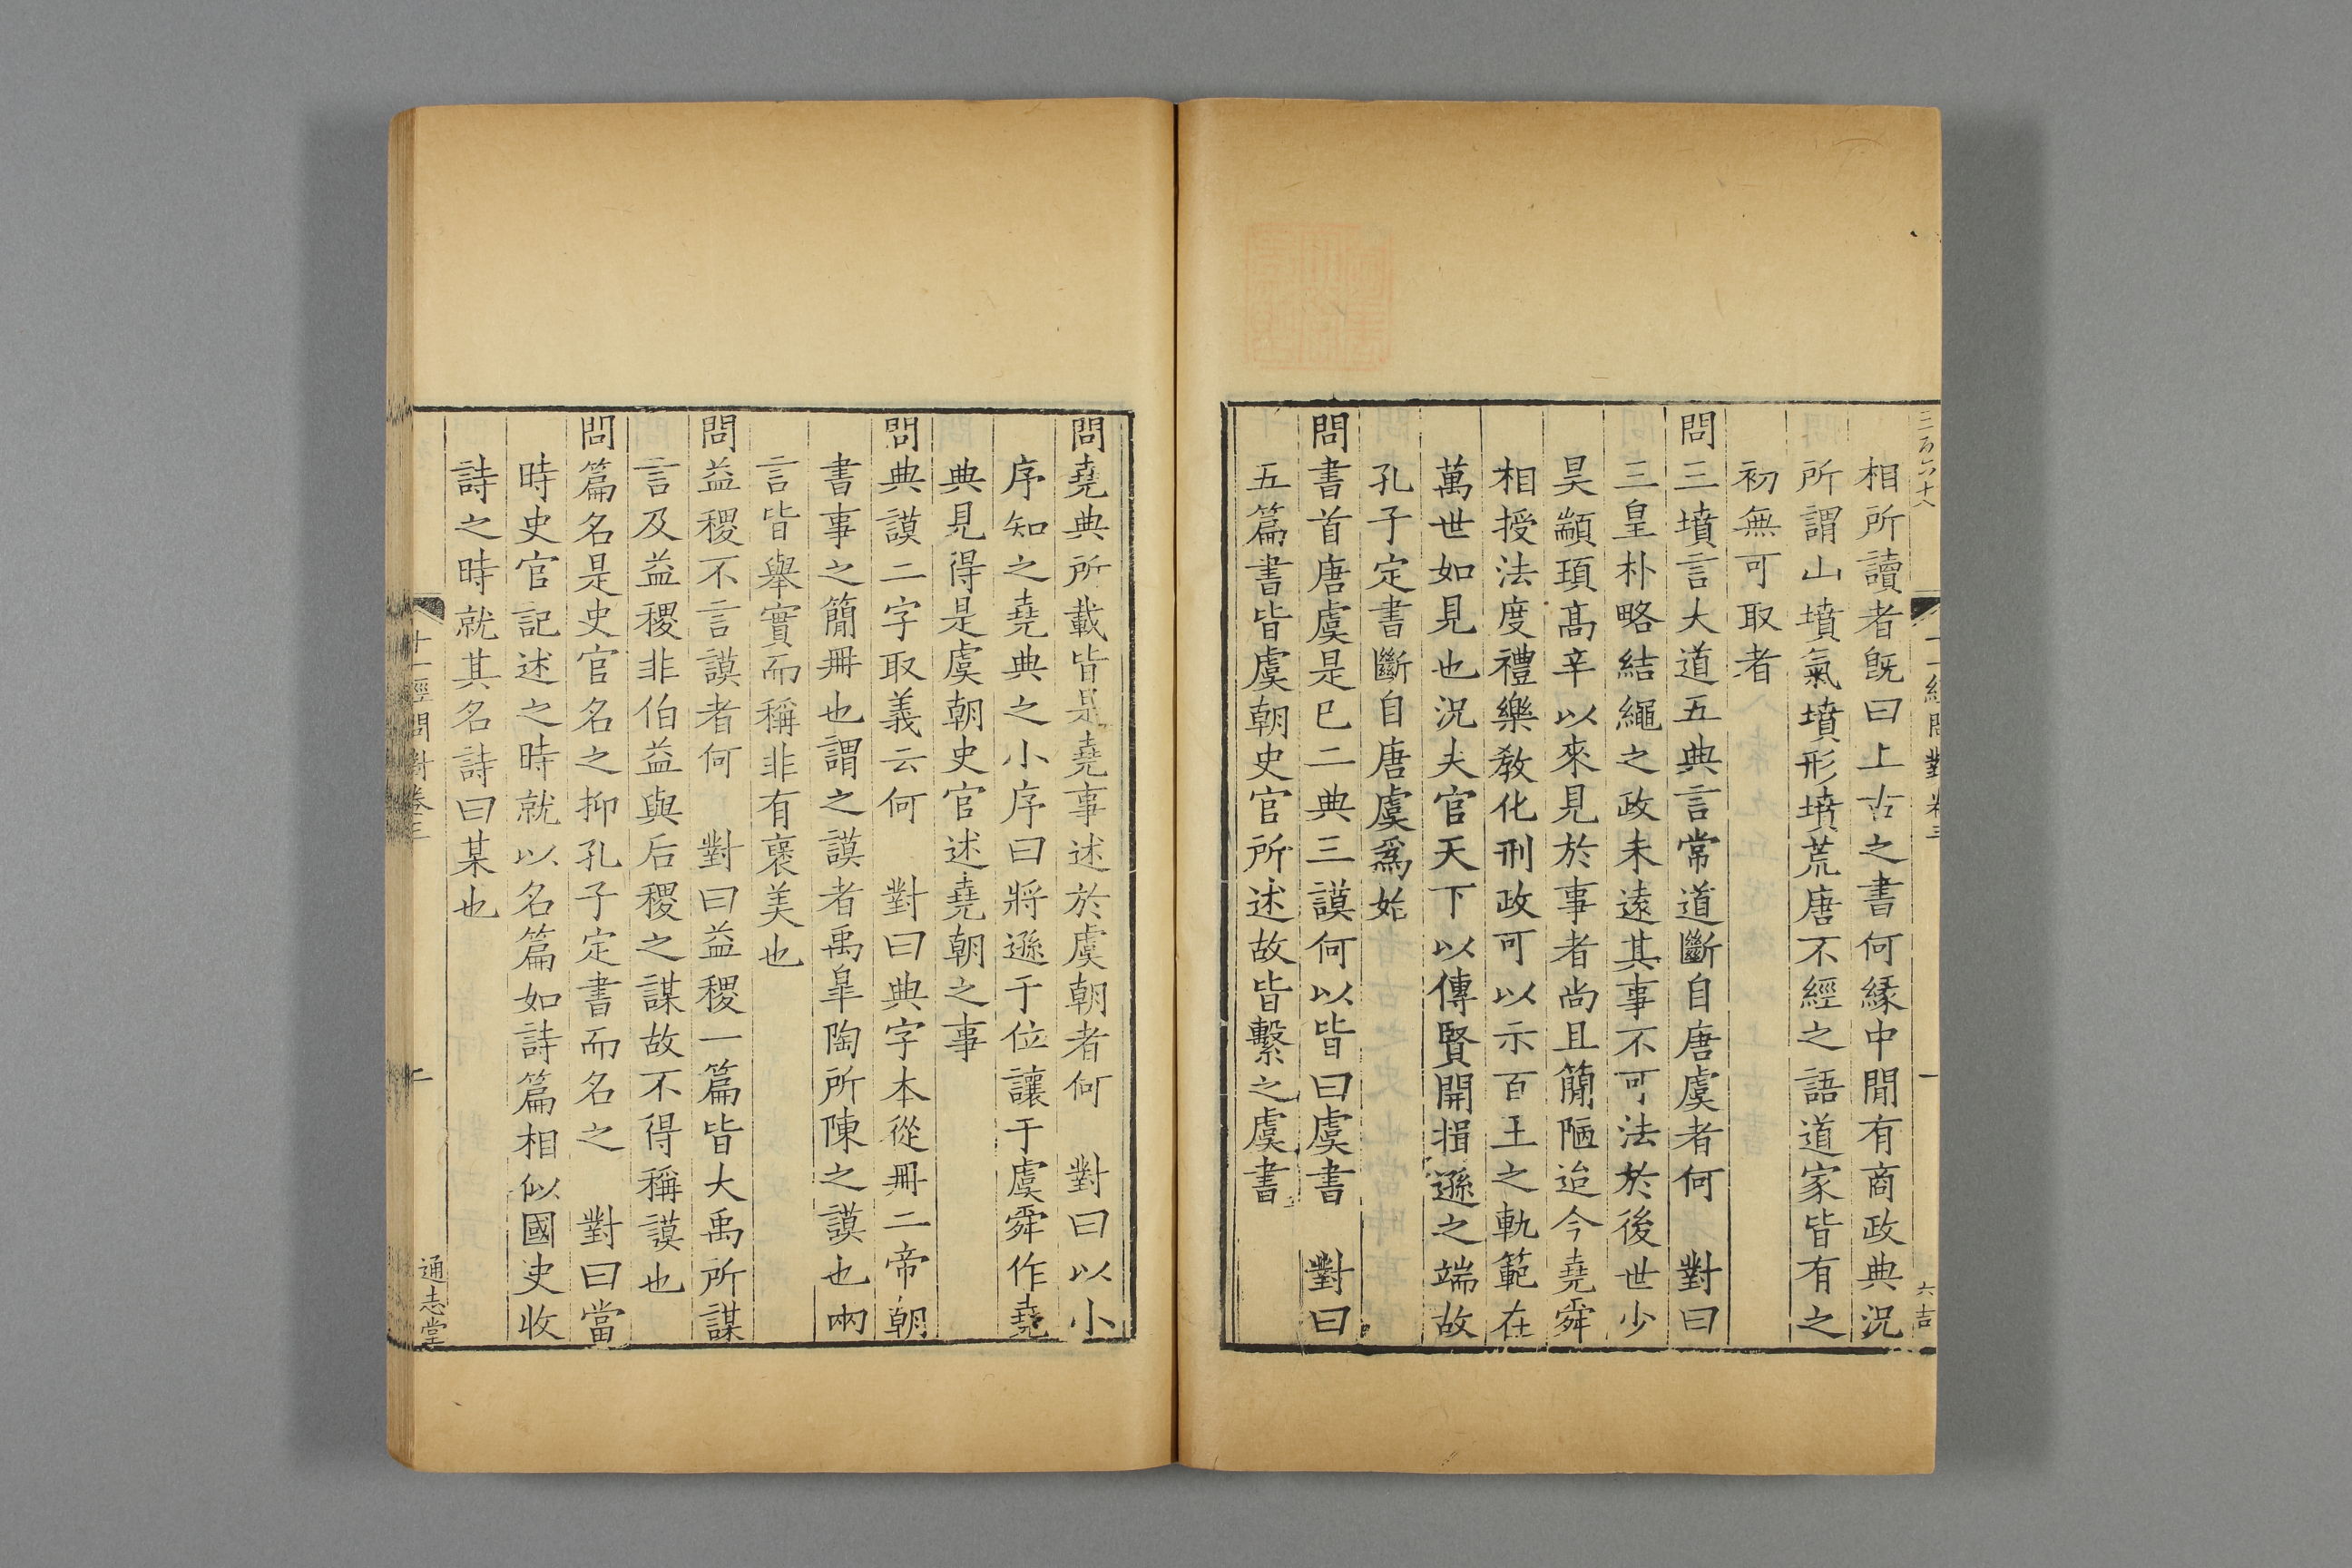 三百六十八
十一經問對卷三
一
六吉
相所讀者旣曰上古之書何縁中閒有商政典況
所謂山墳氣墳形墳荒唐不經之語道家皆有之
初無可取者
問三墳言大道五典言常道斷自唐虞者何　對曰
三皇朴略結繩之政未遠其事不可法於後世少
昊顓頊髙辛以來見於事者尚且簡陋迨今堯舜
相授法度禮樂教化刑政可以示百王之軌範在
萬世如見也況夫官天下以傳賢開揖遜之端故
孔子定書斷自唐虞爲始
問書首唐虞是已二典三謨何以皆曰虞書　對曰
五篇書皆虞朝史官所述故皆繫之虞書
問堯典所載皆是堯事述於虞朝者何　對曰以小
序知之堯典之小序曰將遜于位讓于虞舜作堯
典見得是虞朝史官述堯朝之事
問典謨二字取義云何　對曰典字本從冊二帝朝
書事之簡冊也謂之謨者禹臯陶所陳之謨也兩
言皆舉實而稱非有襃美也
問益稷不言謨者何　對曰益稷一篇皆大禹所謀
言及益稷非伯益與后稷之謀故不得稱謨也
問篇名是史官名之抑孔子定書而名之　對曰當
時史官記述之時就以名篇如詩篇相似國史收
詩之時就其名詩曰某也
十一經問對卷三
通志堂